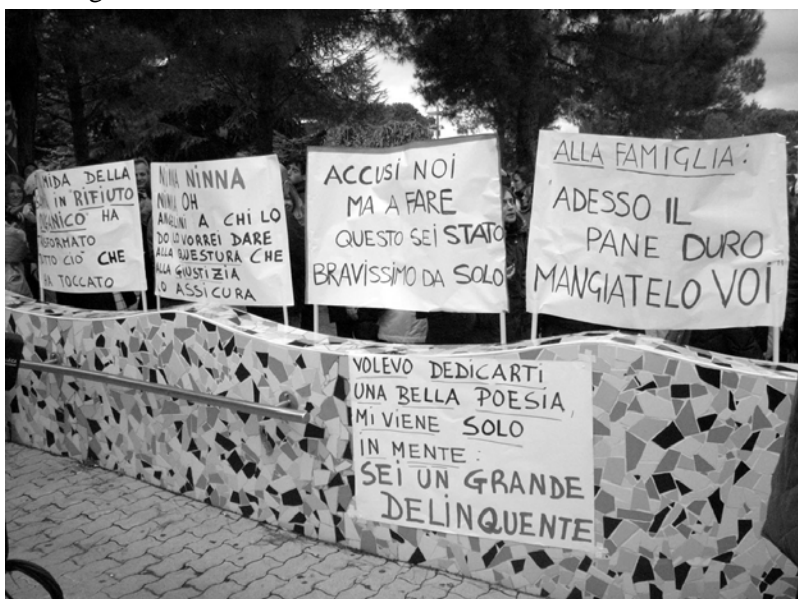 MIDA DELLA
IN "RIFIUTO
HA
CIO' CHE
HA TOCCATO
NINNA NINNA
NINNA OH
ANGELINI A CHI LO
DO LO VORREI DARE
ALLA QUESTURA CHE
ALLA GIUSTIZIA
LO ASSICURA
ACCUSI NOI
MA A FARE
QUESTO SEI STATO
BRAVISSIMO DA SOLO
ALLA FAMIGLIA:
"ADESSO IL
PANE DURO
MANGIATELO VOI"
VOLEVO DEDICARTI
UNA BELLA POESIA,
MI VIENE SOLO
IN MENTE:
SEI UN GRANDE
DELINQUENTE